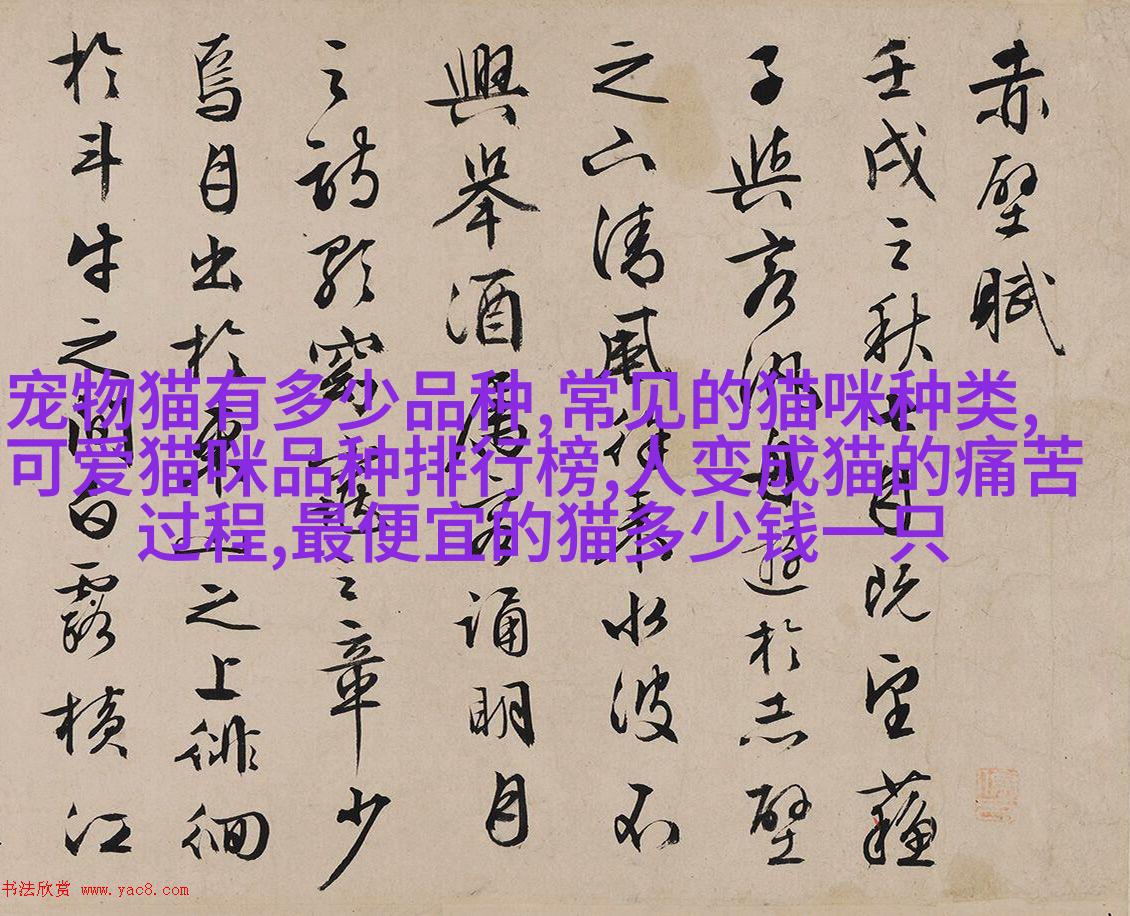 赤壁賦
壬戌之秋七月既望蘇
子與客泛舟遊於赤壁
之下清風徐來水波不
興舉酒屬客誦明月
之詩歌窈窕之章少
焉月出於東山之上徘徊
於斗牛之間白露橫江
宠物猫有多少品种,常见的猫咪种类,
可爱猫咪品种排行榜,人变成猫的痛苦
过程,最便宜的猫多少钱一只
书法欣赏 www.yac8.com